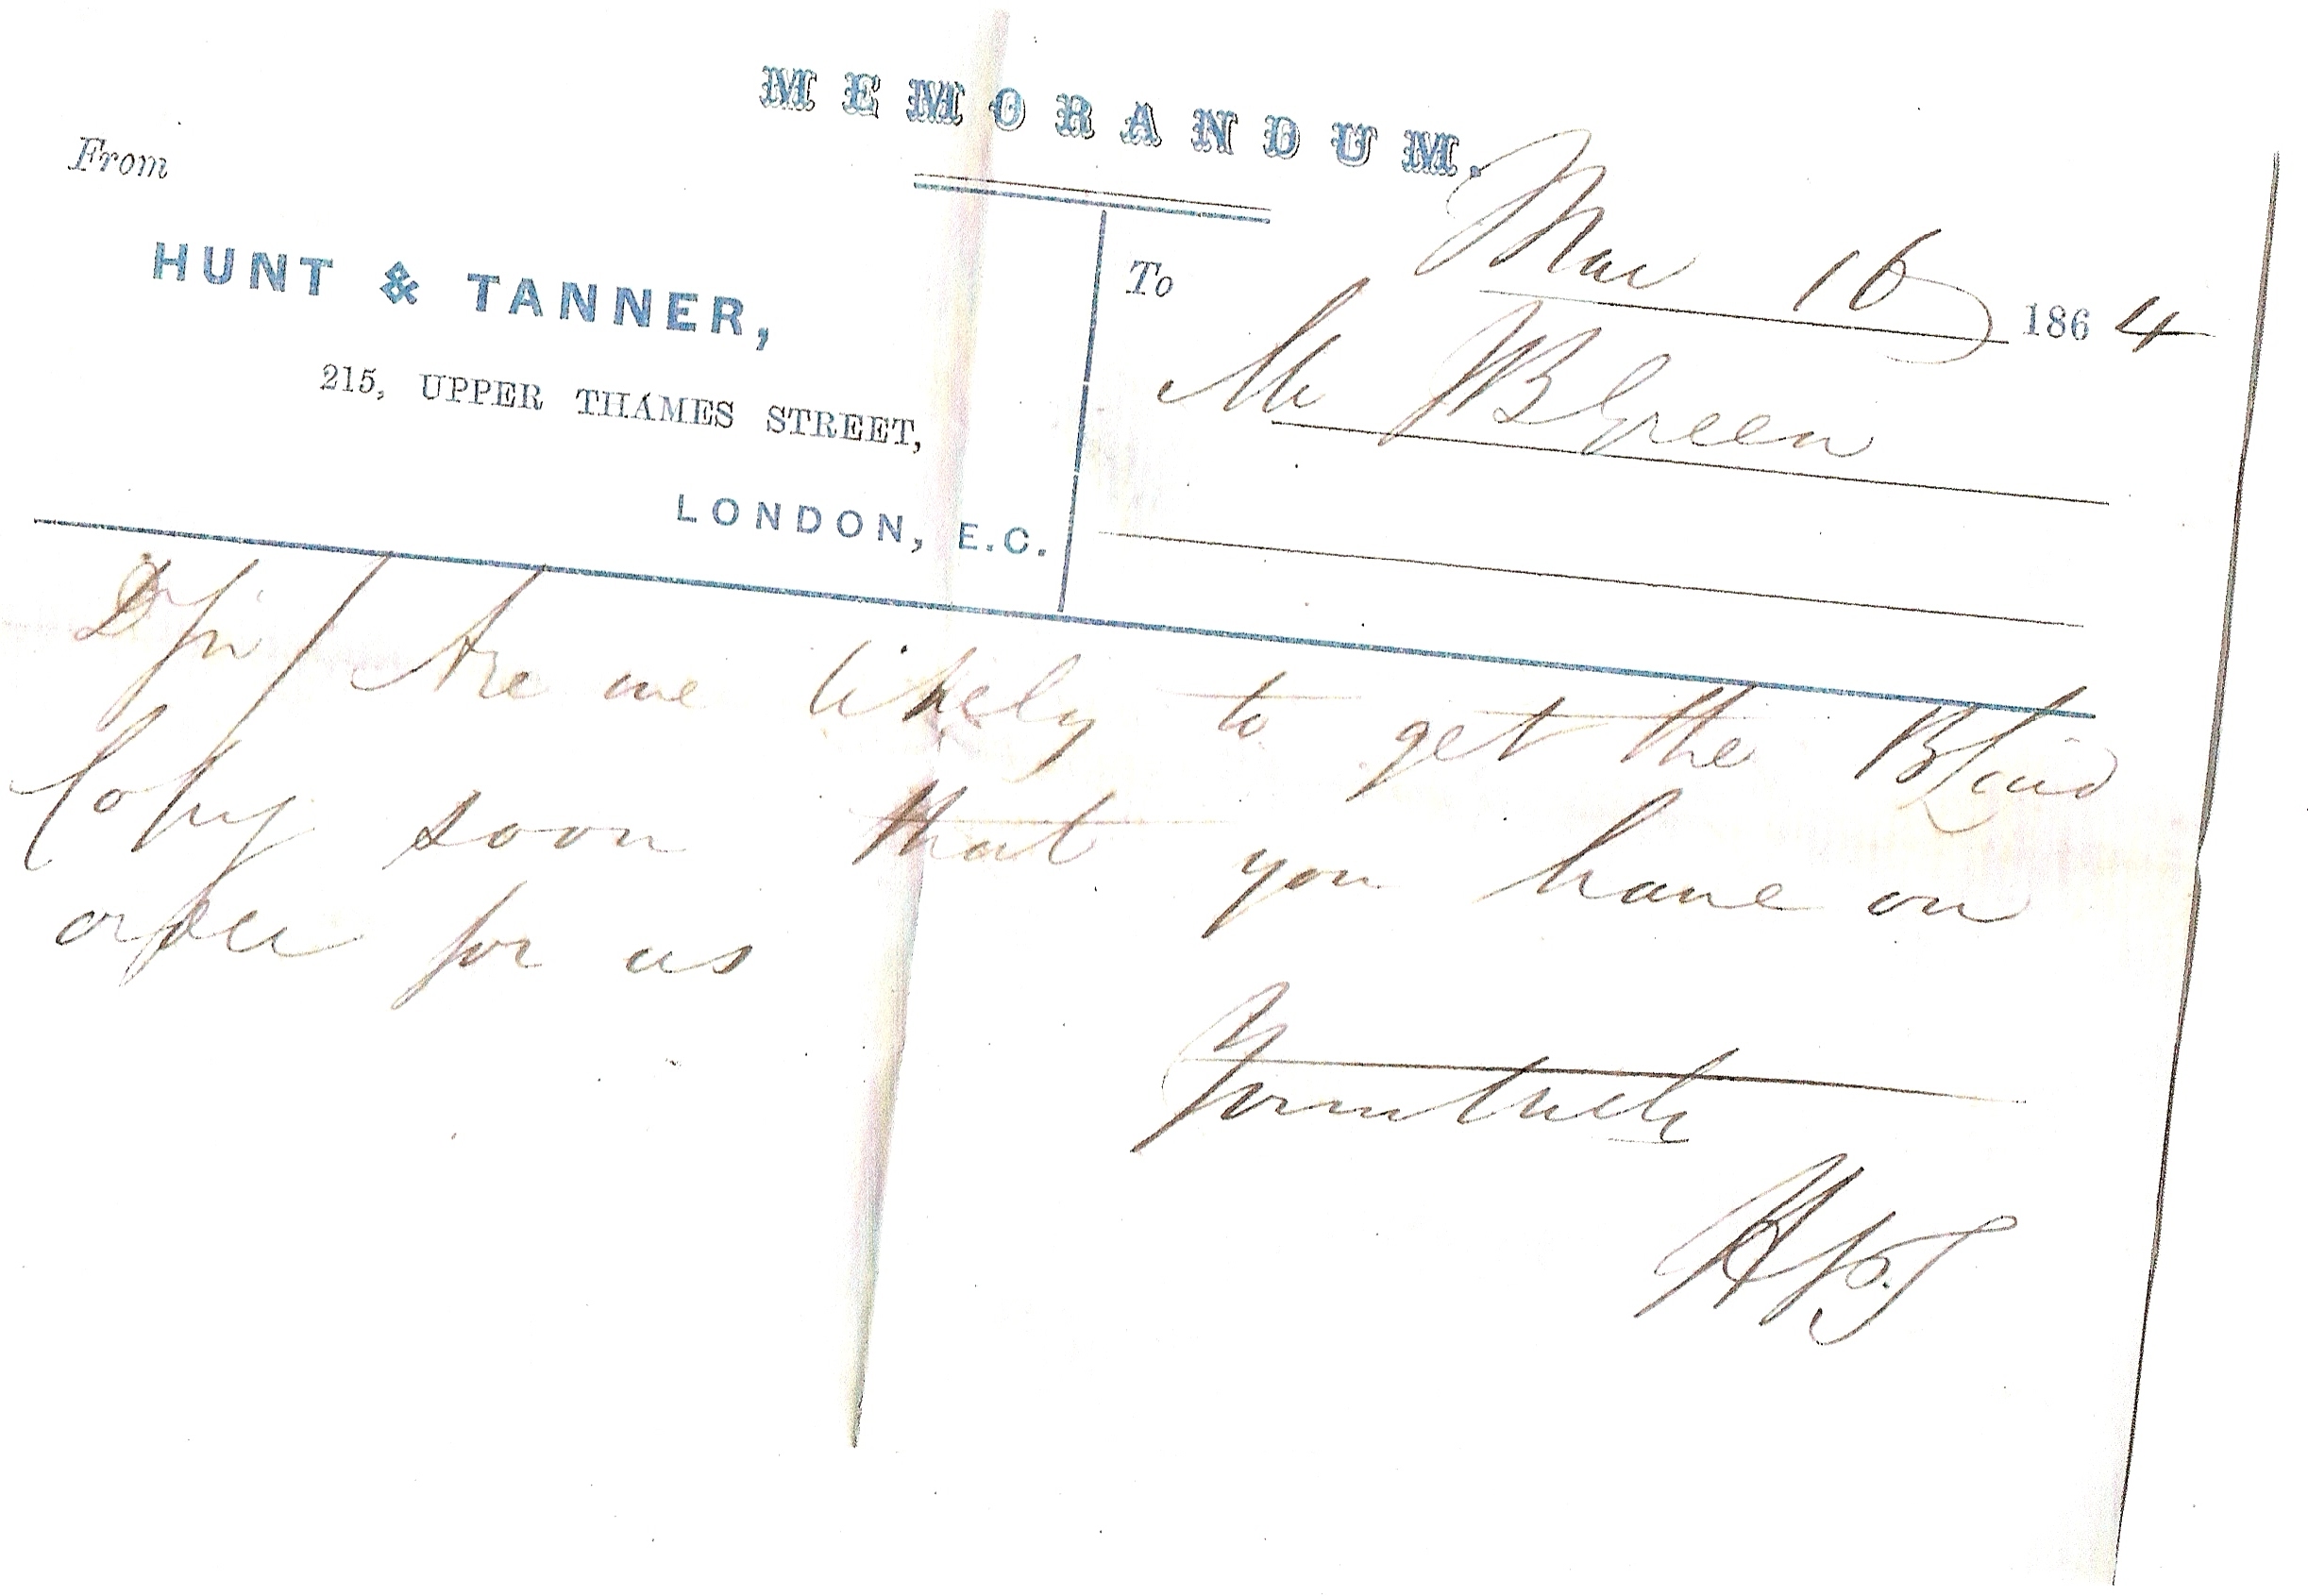 MEMORANDUM.
From
HUNT & TANNER,
215, UPPER THAMES STREET,
LONDON, E.C.
Mar 16 1864
To
Mr JB Green
D Sir/ Are we likely to get the
Copy soon that you have on
order for us
Yours truly
H & T